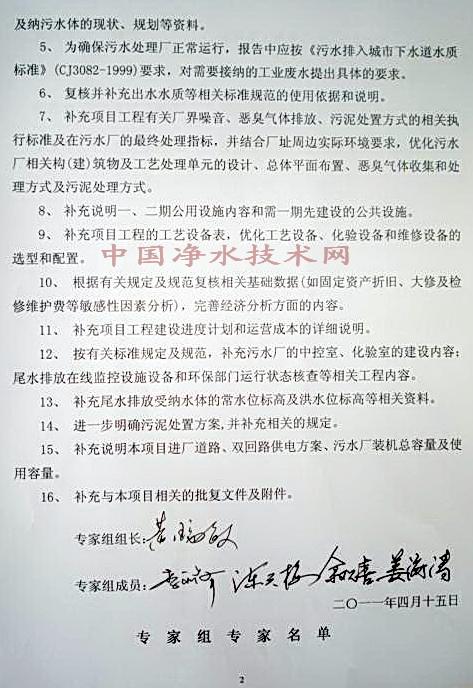 及纳污水体的现状、规划等资料。
5、 为确保污水处理厂正常运行，报告中应按《污水排入城市下水道水质
标准》(CJ3082-1999)要求，对需要接纳的工业废水提出具体的要求。
6、 复核并补充出水水质等相关标准规范的使用依据和说明。
7、 补充项目工程有关厂界噪音、恶臭气体排放、污泥处置方式的相关执
行标准及在污水厂的最终处理指标，并结合厂址周边实际环境要求，优化污水
厂相关构(建)筑物及工艺处理单元的设计、总体平面布置、恶臭气体收集和处
理方式及污泥处理方式。
8、 补充说明一、二期公用设施内容和需一期先建设的公共设施。
9、 补充项目工程的工艺设备表，优化工艺设备、化验设备和维修设备的
选型和配置。
中国净水技术网
10、 根据有关规定及规范复核相关基础数据(如固定资产折旧、大修及检
修维护费等敏感性因素分析)，完善经济分析方面的内容。
11、 补充项目工程建设进度计划和运营成本的详细说明。
12、 按有关标准规定及规范，补充污水厂的中控室、化验室的建设内容；
尾水排放在线监控设施设备和环保部门运行状态核查等相关工程内容。
13、 补充尾水排放受纳水体的常水位标高及洪水位标高等相关资料。
14、 进一步明确污泥处置方案,并补充相关的规定。
15、 补充说明本项目进厂道路、双回路供电方案、污水厂装机总容量及使
用容量。
16、 补充与本项目相关的批复文件及附件。
专家组组长:
专家组成员:
二〇一一年四月十五日
专 家 组 专 家 名 单
2